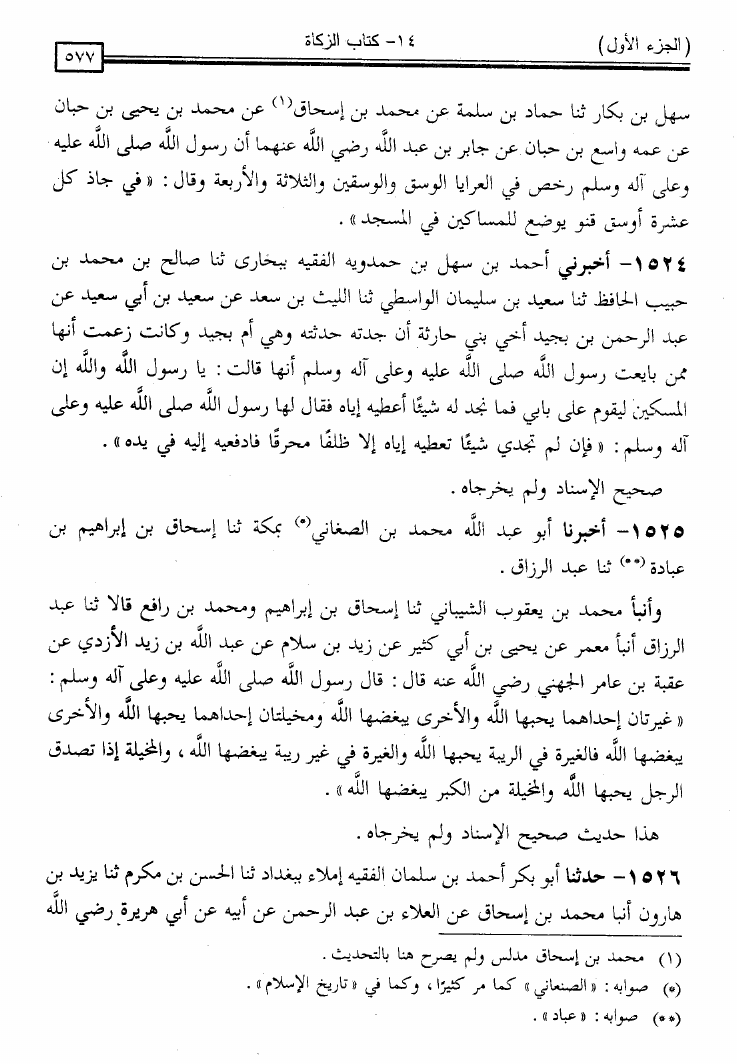 (الجزء الأول)
١٤- كتاب الزكاة
٥٧٧
سهل بن بكار ثنا حماد بن سلمة عن محمد بن إسحاق(١) عن محمد بن يحيى بن حبان
عن عمه واسع بن حبان عن جابر بن عبد الله رضي الله عنهما أن رسول الله صلى الله عليه
وعلى آله وسلم رخص في العرايا الوسق والوسقين والثلاثة والأربعة وقال : « في جاذ كل
عشرة أوسق قنو يوضع للمساكين في المسجد » .
١٥٢٤- أخبرني أحمد بن سهل بن حمدويه الفقيه ببخارى ثنا صالح بن محمد بن
حبيب الحافظ ثنا سعيد بن سليمان الواسطي ثنا الليث بن سعد عن سعيد بن أبي سعيد عن
عبد الرحمن بن بجيد أخي بني حارثة أن جدته حدثته وهي أم بجيد وكانت زعمت أنها
ممن بايعت رسول الله صلى الله عليه وعلى آله وسلم أنها قالت : يا رسول الله والله إن
المسكين ليقوم على بابي فما نجد له شيئًا أعطيه إياه فقال لها رسول الله صلى الله عليه وعلى
آله وسلم : « فإن لم تجدي شيئًا تعطيه إياه إلا ظلفًا محرقًا فادفعيه إليه في يده » .
صحيح الإسناد ولم يخرجاه .
١٥٢٥- أخبرنا أبو عبد الله محمد بن الصغاني(*) بمكة ثنا إسحاق بن إبراهيم بن
عبادة(**) ثنا عبد الرزاق .
وأنبأ محمد بن يعقوب الشيباني ثنا إسحاق بن إبراهيم ومحمد بن رافع قالا ثنا عبد
الرزاق أنبأ معمر عن يحيى بن أبي كثير عن زيد بن سلام عن عبد الله بن زيد الأزدي عن
عقبة بن عامر الجهني رضي الله عنه قال : قال رسول الله صلى الله عليه وعلى آله وسلم :
« غيرتان إحداهما يحبها الله والأخرى يبغضها الله ومخيلتان إحداهما يحبها الله والأخرى
يبغضها الله فالغيرة في الريبة يحبها الله والغيرة في غير ريبة يبغضها الله ، والمخيلة إذا تصدق
الرجل يحبها الله والمخيلة من الكبر يبغضها الله » .
هذا حديث صحيح الإسناد ولم يخرجاه .
١٥٢٦- حدثنا أبو بكر أحمد بن سلمان الفقيه إملاء ببغداد ثنا الحسن بن مكرم ثنا يزيد بن
هارون أنبا محمد بن إسحاق عن العلاء بن عبد الرحمن عن أبيه عن أبي هريرة رضي الله
(١) محمد بن إسحاق مدلس ولم يصرح هنا بالتحديث .
(*) صوابه : « الصنعاني » كما مر كثيرًا ، وكما في « تاريخ الإسلام » .
(**) صوابه : « عباد » .